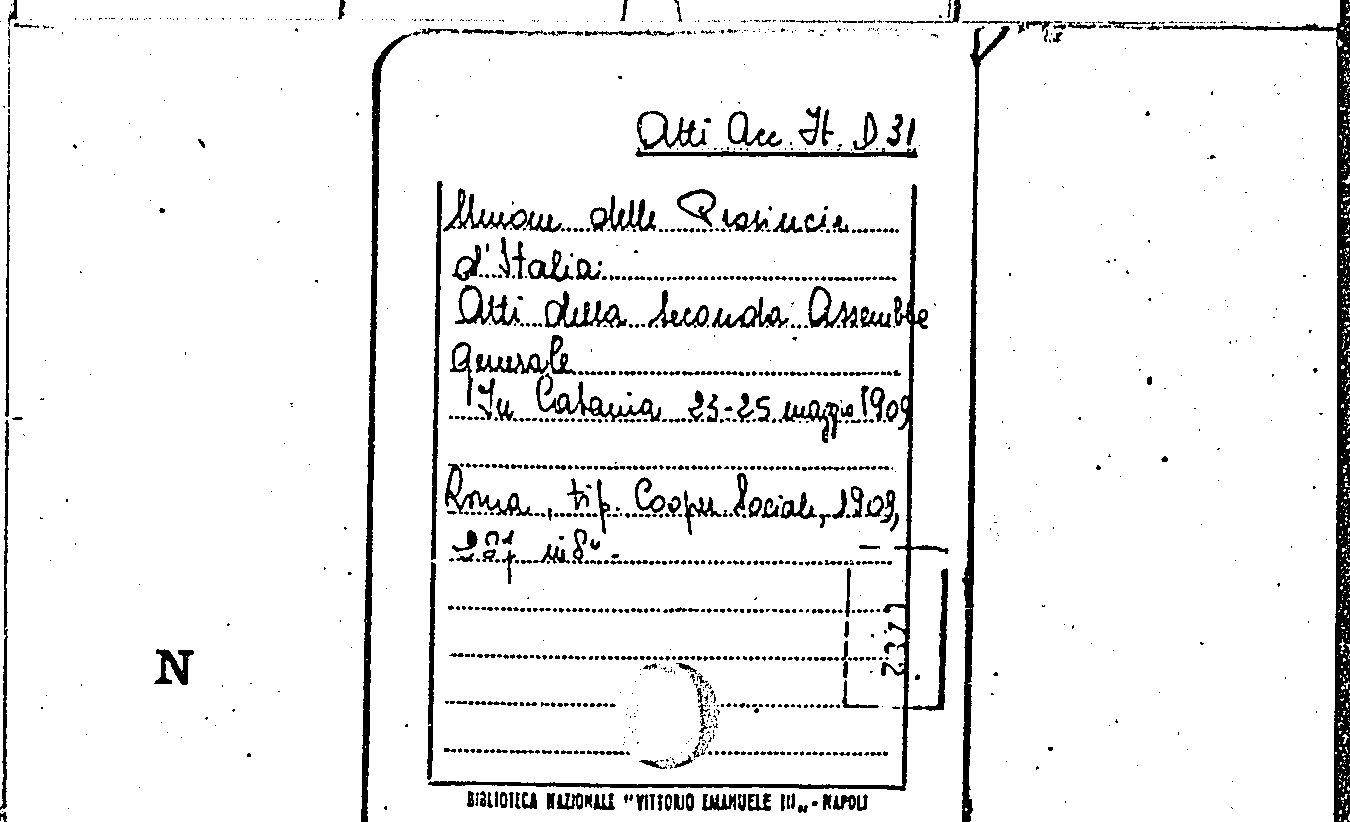 Atti Acc. It. D 31
Unione delle Provincie
d'Italia.
Atti della Seconda Assemble
generale
In Catania 23-25 maggio 1909
Roma, tip. Cooper Sociale, 1909,
in 8°.
2377
N
BIBLIOTECA NAZIONALE "VITTORIO EMANUELE III„ - NAPOLI